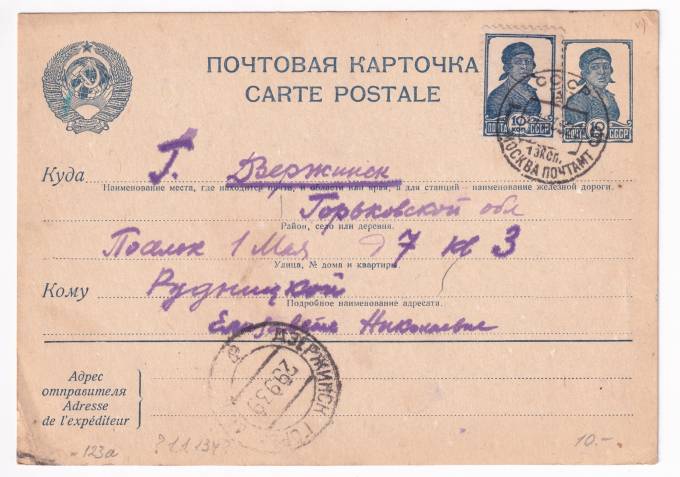 ПОЧТОВАЯ КАРТОЧКА
CARTE POSTALE
10 КОП. ПОЧТА СССР
10 ПОЧТА СССР
СССР
1 ЭКСП.
МОСКВА ПОЧТАМТ
Куда Г. Дзержинск
Наименование места, где находится почта, и области или края, а для станций — наименование железной дороги.
Горьковской обл
Район, село или деревня.
Поселок 1 Мая д 7 кв 3
Улица, № дома и квартиры.
Кому Рудницкой
Подробное наименование адресата.
Елизавете Николаевне
ДЗЕРЖИНСК
26 9 39
Адрес
отправителя
Adresse
de l'expéditeur
123а
11.134
10.-